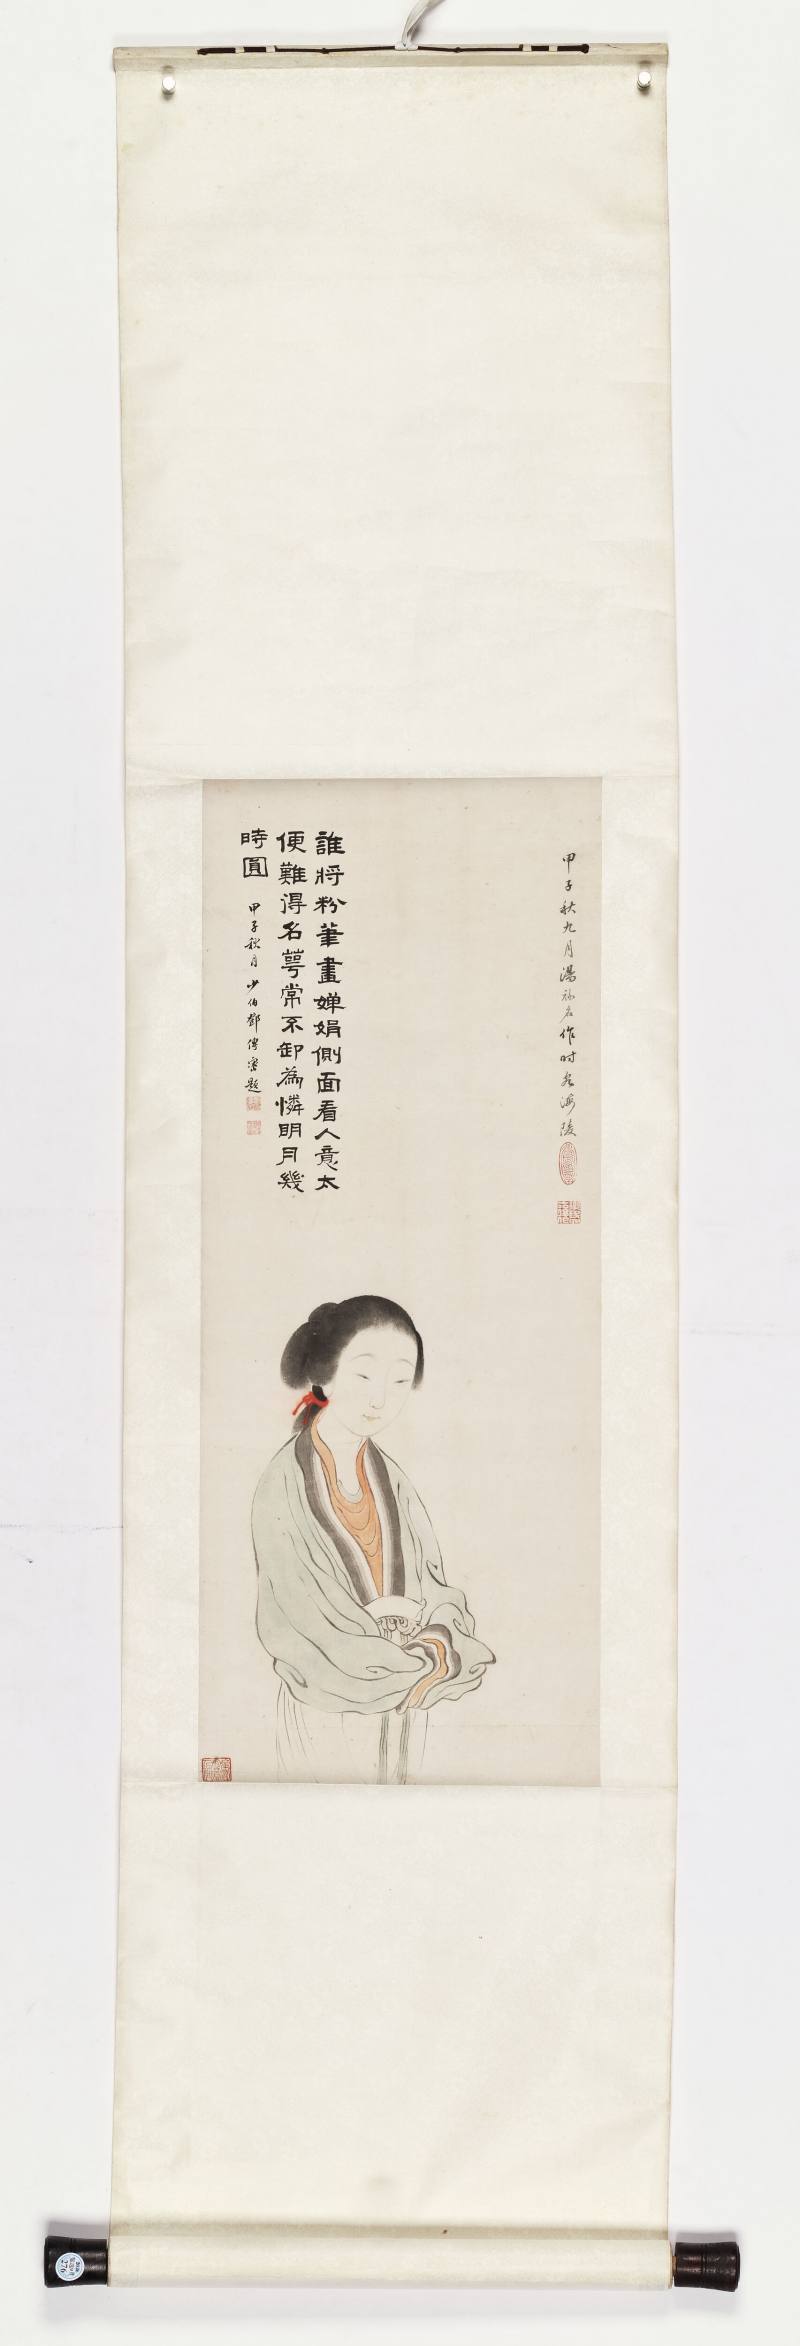 甲子秋九月湯祿名作时客海陵
誰將粉筆畫嬋娟側面看人意太
便難得名萼常不卸為憐明月幾
時圓
甲子秋月少伯鄧傳密題
276